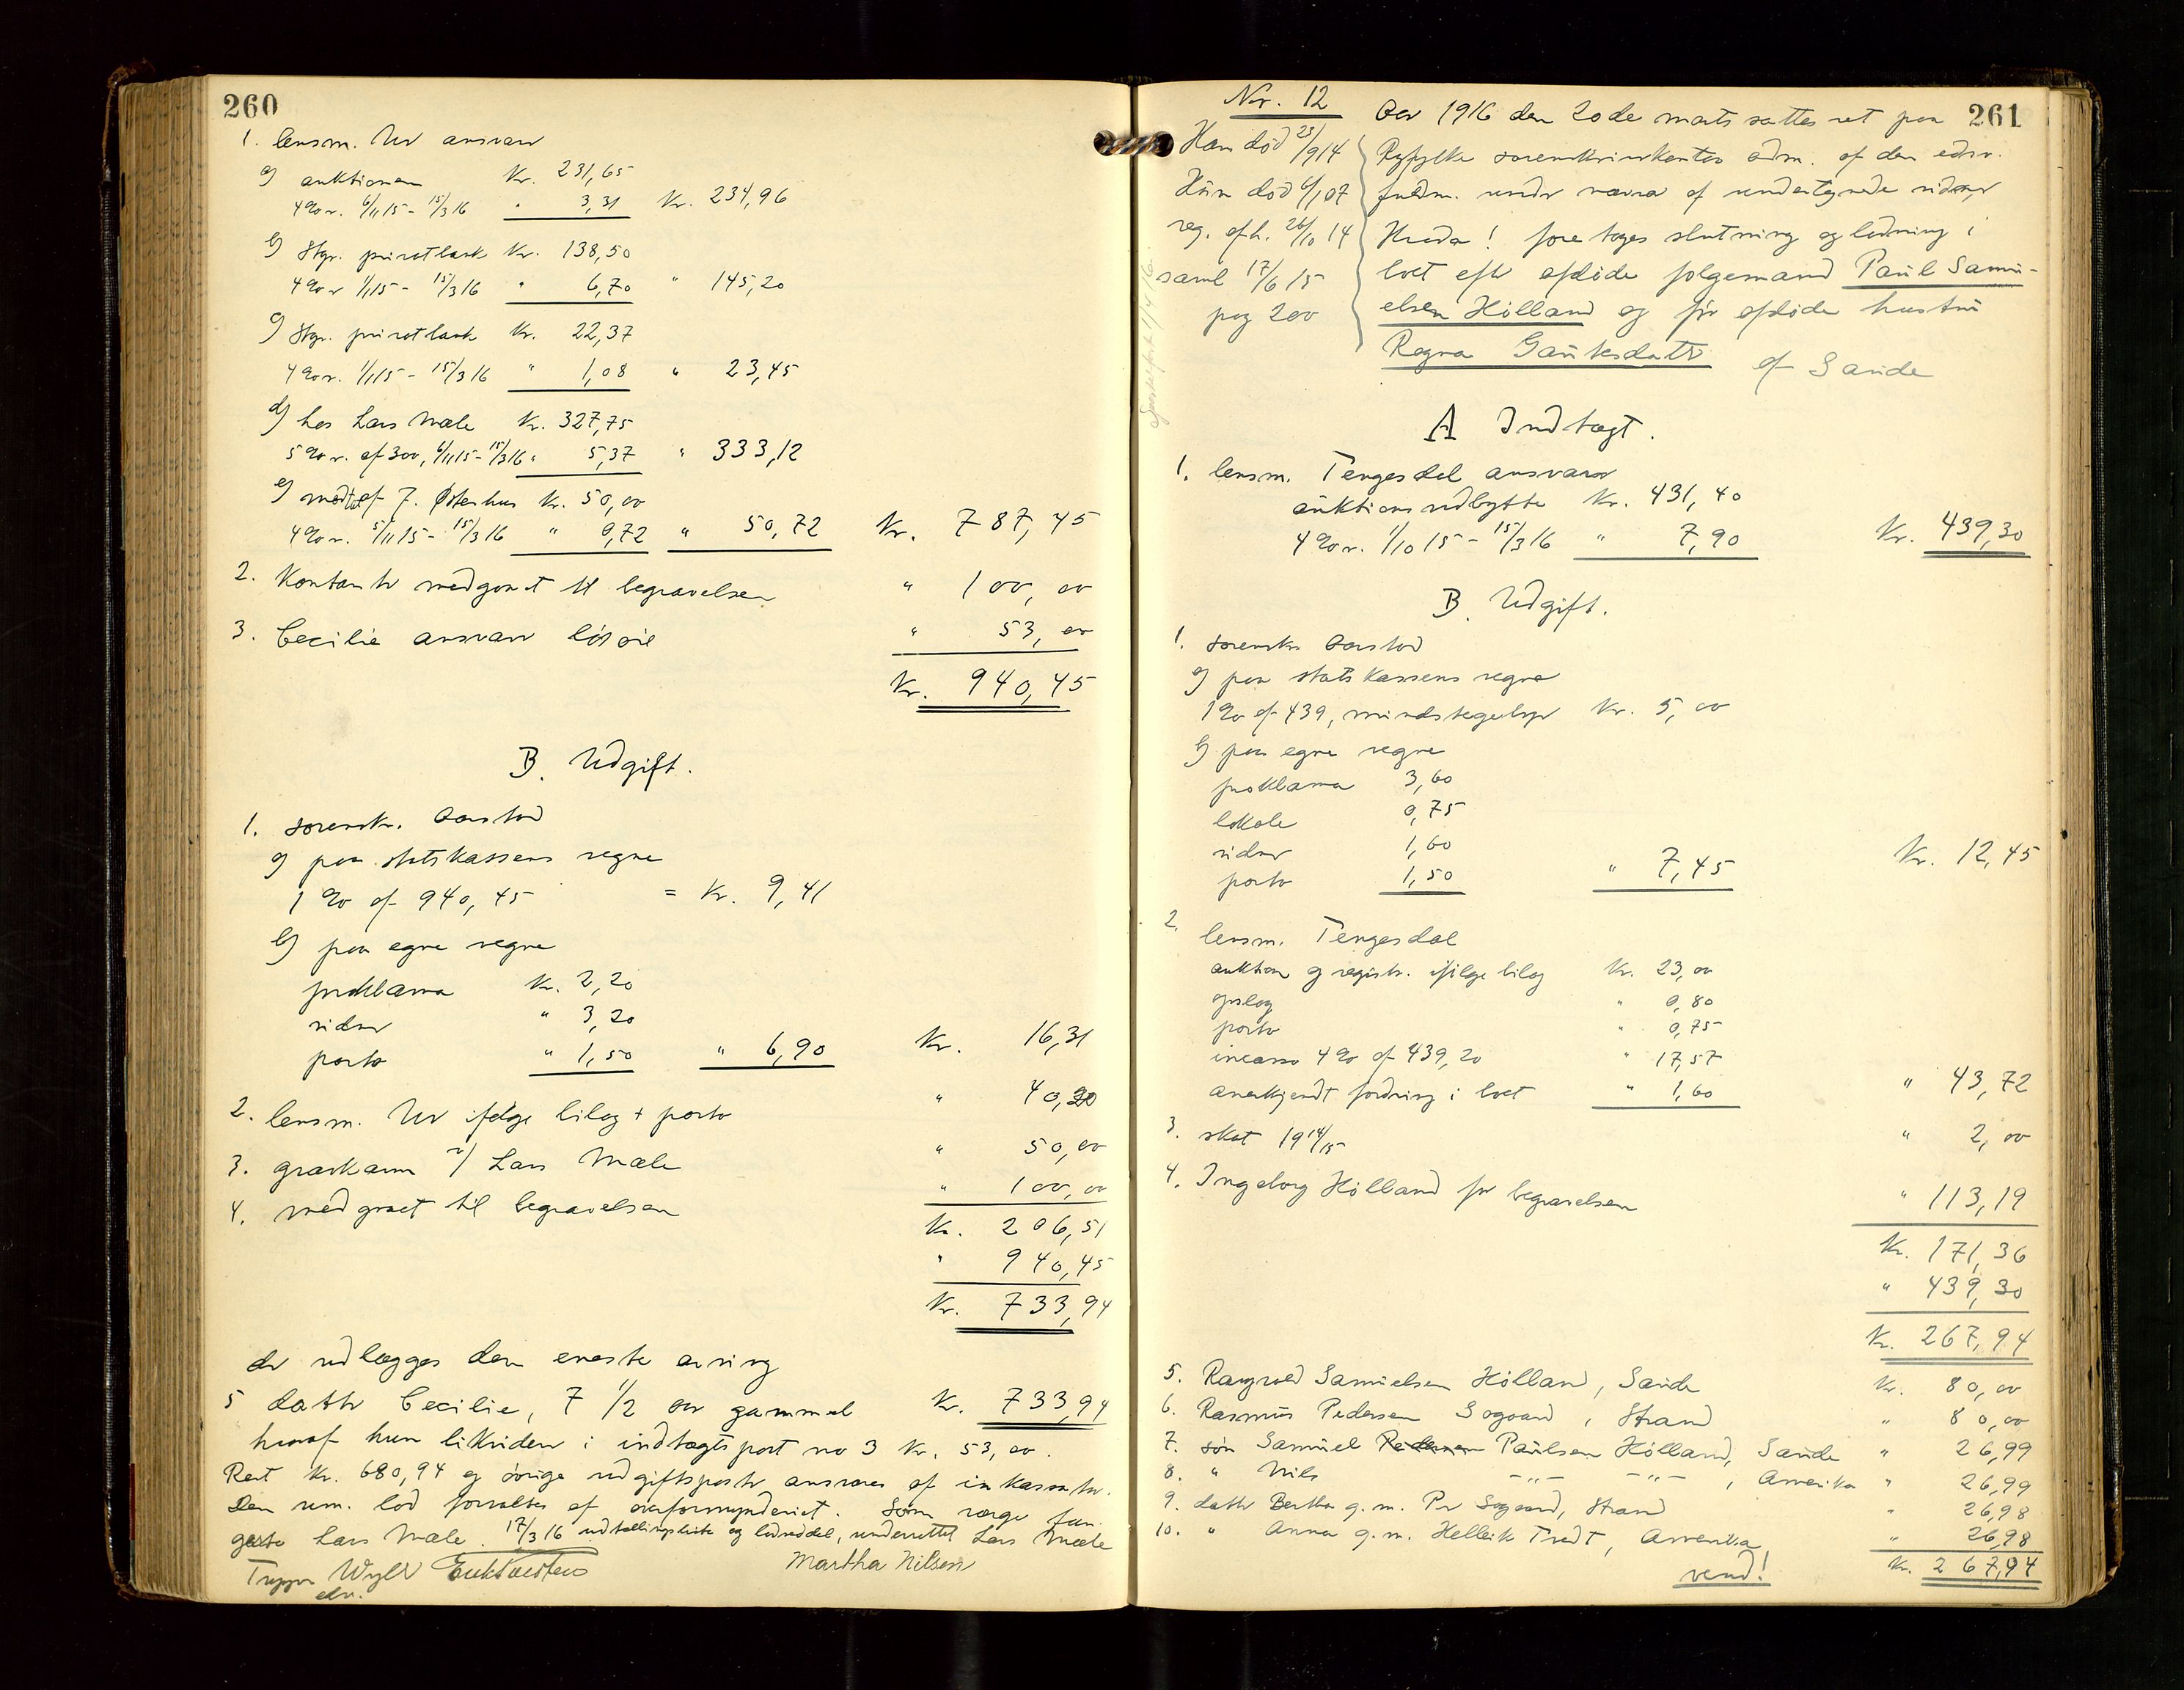 260
1. lensm. Ur ansvar
a) auktionen Kr. 231,65
4 % r. 6/11 15 - 15/3 16 " 3,31 Kr. 234,96
b) Stgr. privatbank Kr. 138,50
4 % r 1/1 15 - 15/3 16 " 6,70 " 145,20
c) Stgr. privatbank Kr. 22,37
4 % r. 1/1 15 - 15/3 16 " 1,08 " 23,45
d) hos Lars Mæle Kr. 327,75
5 % r. af 300, 6/11 15 - 15/3 16 " 5,37 " 333,12
e) modtat af J. Østerhus Kr. 50,00
4 % r. 5/11 15 - 15/3 16 " 0,72 " 50,72 Kr. 787,45
2. Kontanter medgaaet til begravelsen " 100,00
3. Cecilie ansvar løsøre " 53,00
Kr. 940,45
B. Udgift.
1. sorenskr. Aarstad
a) paa statskassens regne
1 % af 940,45 = Kr. 9,41
b) paa egne regne
proklama Kr. 2,20
vidner " 3,20
porto " 1,50 " 6,90 Kr. 16,31
2. lensm. Ur ifølge bilag + porto " 40,20
3. gravkam v/ Lars Mæle " 50,00
4. medgaaet til begravelsen " 100,00
Kr. 206,51
" 940,45
Kr. 733,94
der udlægges den eneste arving
5 datter Cecilie, 7 1/2 aar gammel Kr. 733,94
hvoraf hun likviderer i indtægtspost no 3 Kr. 53,00.
Rest Kr. 680,94 og øvrige udgiftsposter ansvares af inkassator.
Den um. lod forvaltes af overformynderiet. Som værge fun-
gerte Lars Mæle. 17/3 16 udtællingsliste og lodseddel, underrettet Lars Mæle
Trygve Wyller Martha Nilsen
edsv.
Nr. 12
261
Aar 1916 den 20de marts sattes ret paa
Han død 23/9 14 Ryfylke sorenskriverkontor adm. af den edsv.
Hun død 6/1 07 fuldm. under nærvær af undertegnede vidner
reg. afh. 26/10 14 Hvorda! foretages slutning og lodning i
saml 17/6 15 boet efter afdøde følgemand Paul Samu-
pag 200 elsen Hølland og før afdøde hustru
Ragna Gautesdatter af Saude
A Indtægt.
1. lensm. Tengesdal ansvarer
auktionsudbytte Kr. 431,40
4 % r. 1/10 15 - 15/3 16 " 7,90 Kr. 439,30
B. Udgift.
1. sorenskr Aarstad
a) paa statskassens regne
1 % af 439, mindstegebyr Kr. 5,00
b) paa egne regne
proklama 3,60
lokale 0,75
vidner 1,60
porto 1,50 " 7,45 Kr. 12,45
2. lensm. Tengesdal
auktion og registr. ifølge bilag Kr. 23,00
opslag " 0,80
porto " 0,75
incasso 4 % af 439,20 " 17,57
anerkjendt fordring i boet " 1,60 " 43,72
3. skat 1914/15 " 2,00
4. Ingeborg Hølland for begravelsen " 113,19
Kr. 171,36
" 439,30
Kr. 267,94
5. Rangvald Samuelsen Hølland, Saude Kr. 80,00
6. Rasmus Pedersen Sogaard, Strand " 80,00
7. søn Samuel Pedersen Paulsen Hølland, Saude " 26,99
8. " Nils -"- -"-, Amerika " 26,99
9. datter Bertha g.m. Pr Sogaard, Strand " 26,98
10. " Anna g.m. Helleik Tvedt, Amerika " 26,98
vend! Kr. 267,94